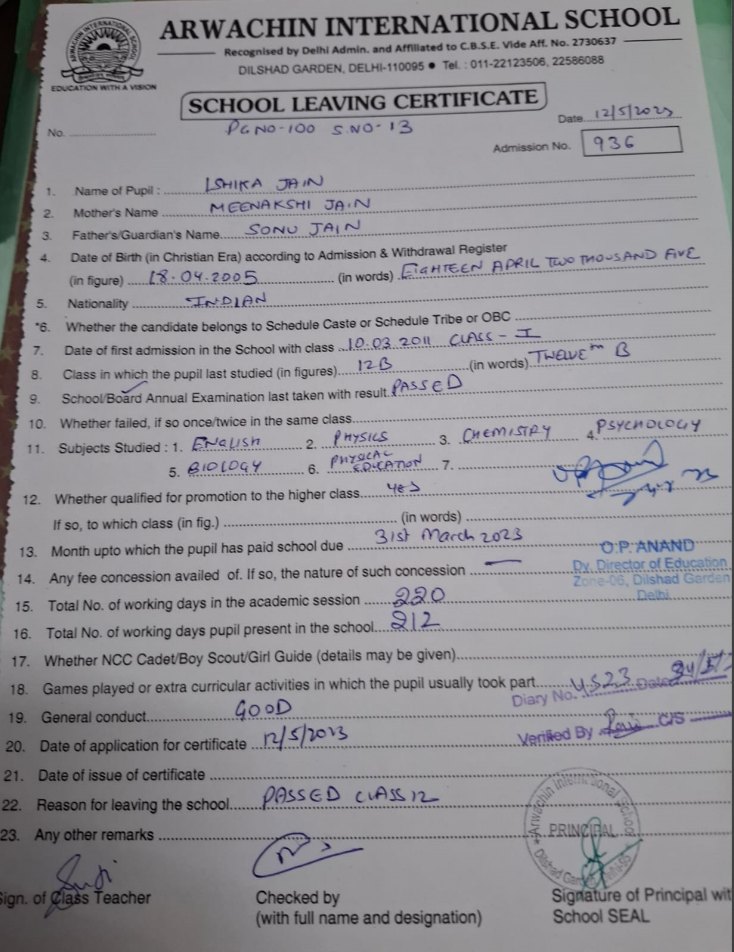 ARWACHIN INTERNATIONAL SCHOOL
ARWACHIN INTERNATIONAL SCHOOL
Recognised by Delhi Admin. and Affiliated to C.B.S.E. Vide Aff. No. 2730637
EDUCATION WITH A VISION
DILSHAD GARDEN, DELHI-110095 ● Tel. : 011-22123506, 22586088
SCHOOL LEAVING CERTIFICATE
No. PG NO-100 S.NO-13 Date 12/5/2023
Admission No. 936
1. Name of Pupil : ISHIKA JAIN
2. Mother's Name MEENAKSHI JAIN
3. Father's/Guardian's Name SONU JAIN
4. Date of Birth (in Christian Era) according to Admission & Withdrawal Register
(in figure) 18.04.2005 (in words) EIGHTEEN APRIL TWO THOUSAND FIVE
5. Nationality INDIAN
*6. Whether the candidate belongs to Schedule Caste or Schedule Tribe or OBC
7. Date of first admission in the School with class 10.03.2011 CLASS - I
8. Class in which the pupil last studied (in figures) 12B (in words) TWELVE th B
9. School/Board Annual Examination last taken with result PASSED
10. Whether failed, if so once/twice in the same class
11. Subjects Studied : 1. ENGLISH 2. PHYSICS 3. CHEMISTRY 4. PSYCHOLOGY
5. BIOLOGY 6. PHYSICAL EDUCATION 7.
12. Whether qualified for promotion to the higher class yes
If so, to which class (in fig.) (in words)
13. Month upto which the pupil has paid school due 31st March 2023
O.P. ANAND
14. Any fee concession availed of. If so, the nature of such concession —
Dy. Director of Education
Zone-06, Dilshad Garden
Delhi
15. Total No. of working days in the academic session 220
16. Total No. of working days pupil present in the school 212
17. Whether NCC Cadet/Boy Scout/Girl Guide (details may be given)
18. Games played or extra curricular activities in which the pupil usually took part
Diary No. Dated
19. General conduct GOOD
Verified By C/S
20. Date of application for certificate 12/5/2023
21. Date of issue of certificate
22. Reason for leaving the school PASSED CLASS 12
23. Any other remarks
Arwachin International School
PRINCIPAL
Sign. of Class Teacher Checked by Signature of Principal wit
(with full name and designation) School SEAL